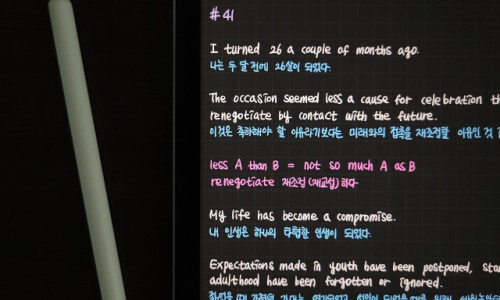 #41
I turned 26 a couple of months ago.
나는 두 달 전에 26살이 되었다.
The occasion seemed less a cause for celebration
renegotiate by contact with the future.
이것은 축하해야 할 이유라기보다는 미래와의 접촉을 재조정할 이유인 것
less A than B = not so much A as B
renegotiate 재조정 (재교섭) 하다
My life has become a compromise.
내 인생은 하나의 타협한 인생이 되었다.
Expectations made in youth have been postponed,
adulthood have been forgotten or ignored.